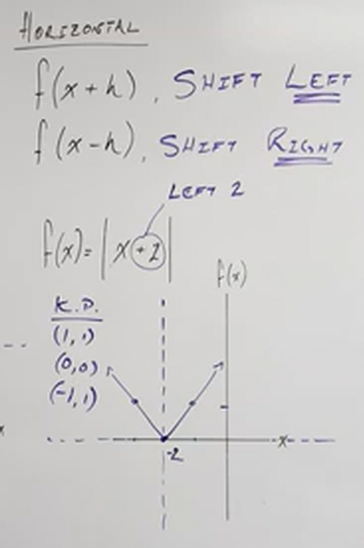 HORIZONTAL
f(x+h), SHIFT LEFT
f(x-h), SHIFT RIGHT
LEFT 2
f(x)=|x+2|
f(x)
K.P.
(1,1)
(0,0)
(-1,1)
x
-2